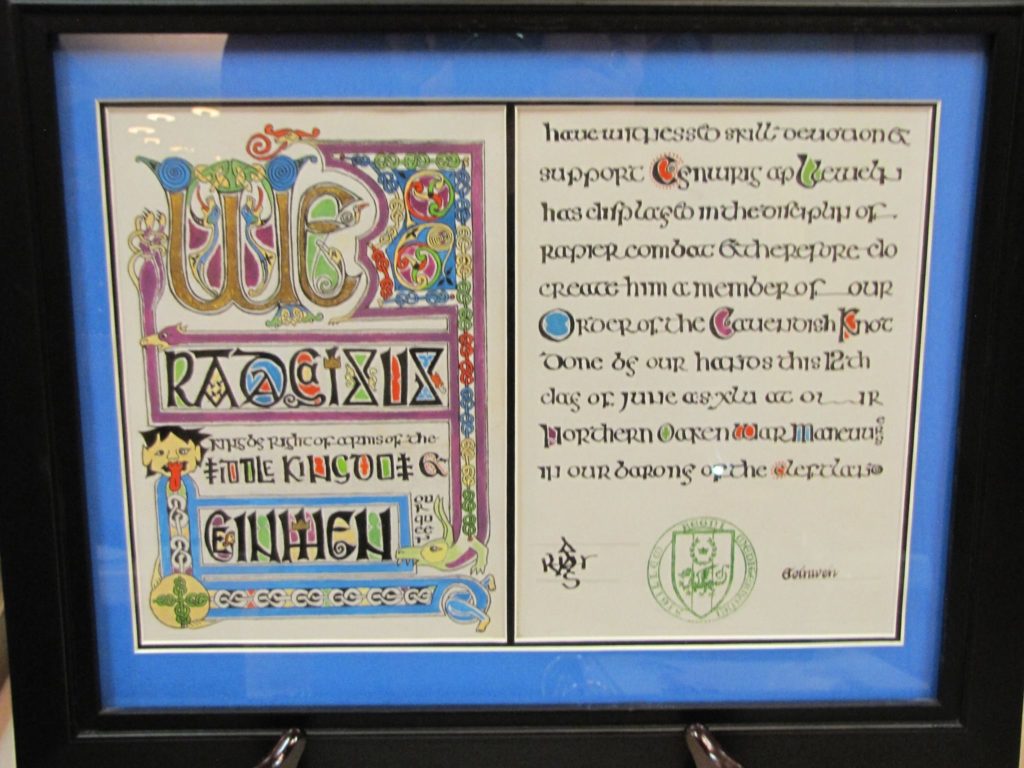 WE
KING by right of arms of the
middle KINGdom &
have witnessed skill devotion &
support Cynwrig ap Llewelyn
has displayed in the disciplin of
rapier combat & therefore do
create him a member of our
Order of the Cavendish Knot
Done by our hands this 12th
day of june as xlii at our
Northern Oaken War Maneuvers
in our barony of the Cleftlands
Eoinwen